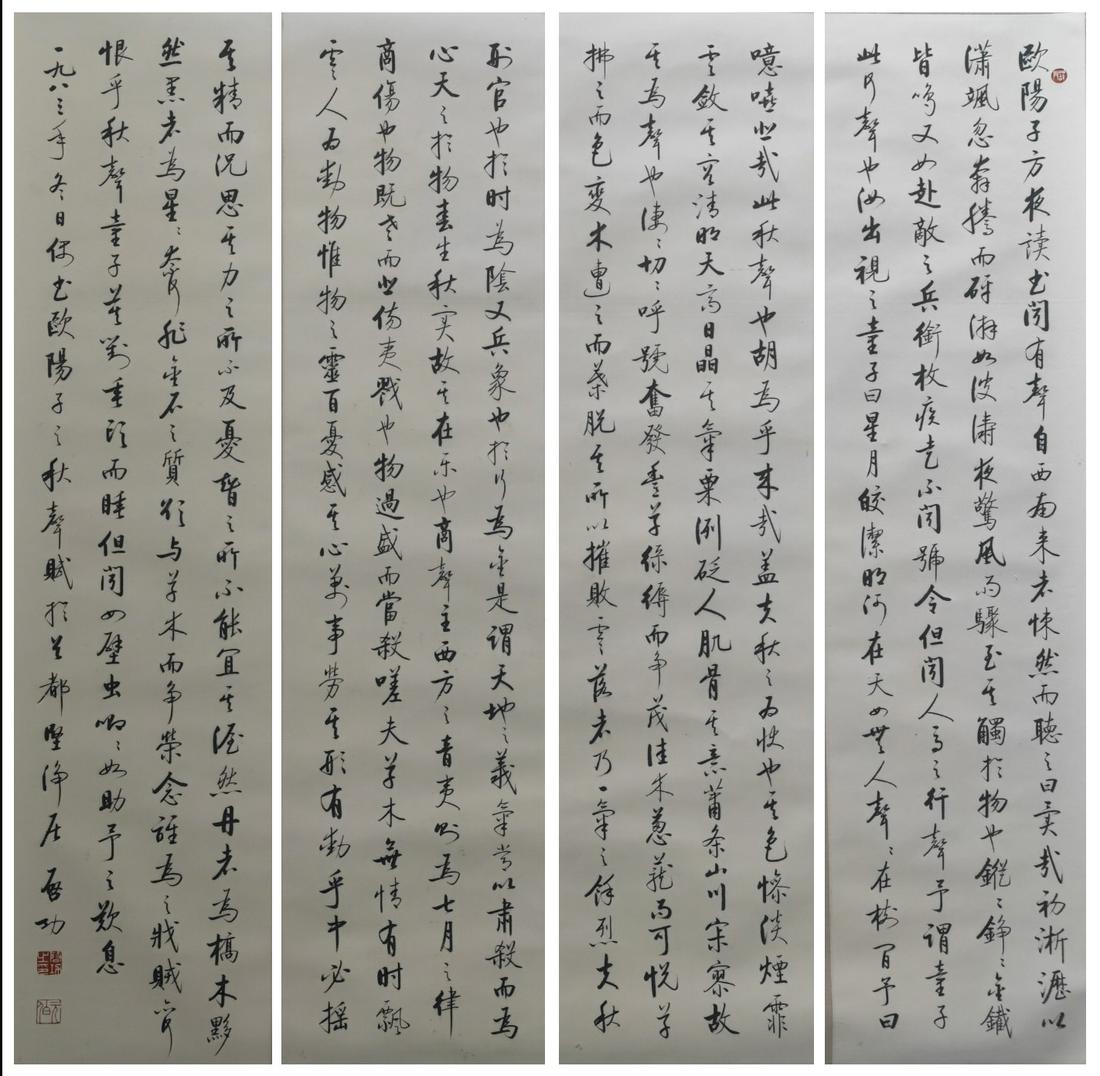 歐陽子方夜读书闻有聲自西南来者悚然而聽之曰異哉初淅瀝以
瀟颯忽奔騰而砰湃如波涛夜驚風雨驟至其觸於物也鏦〻錚〻金鐵
皆鸣又如赴敵之兵銜枚疾走不闻號令但闻人马之行聲予謂童子
此何聲也汝出視之童子曰星月皎潔明河在天四無人聲〻在树间予曰
噫嘻悲哉此秋聲也胡為乎来哉盖夫秋之为状也其色惨淡煙霏
雲斂其容清明天高日晶其氣栗冽砭人肌骨其意蕭条山川寂寥故
其為聲也凄〻切〻呼號奮發豊草绿縟而争茂佳木葱蘢而可悦草
拂之而色变木遭之而葉脱其所以摧敗零落者乃一氣之餘烈夫秋
刑官也於时為陰又兵象也於行為金是謂天地之義氣常以肅殺而為
心天之於物春生秋实故其在乐也商聲主西方之音夷则為七月之律
商傷也物既老而悲傷夷戮也物過盛而當殺嗟夫草木無情有时飄
零人为動物惟物之靈百憂感其心萬事勞其形有動乎中必摇
其精而况思其力之所不及憂智之所不能宜其渥然丹者為槁木黟
然黑者為星〻奈何非金石之質欲与草木而争榮念誰為之戕賊亦何
恨乎秋聲童子莫對垂头而睡但闻四壁虫唧〻如助予之歎息
一九八三年冬日偶书歐陽子之秋聲賦於首都堅净居 啟功